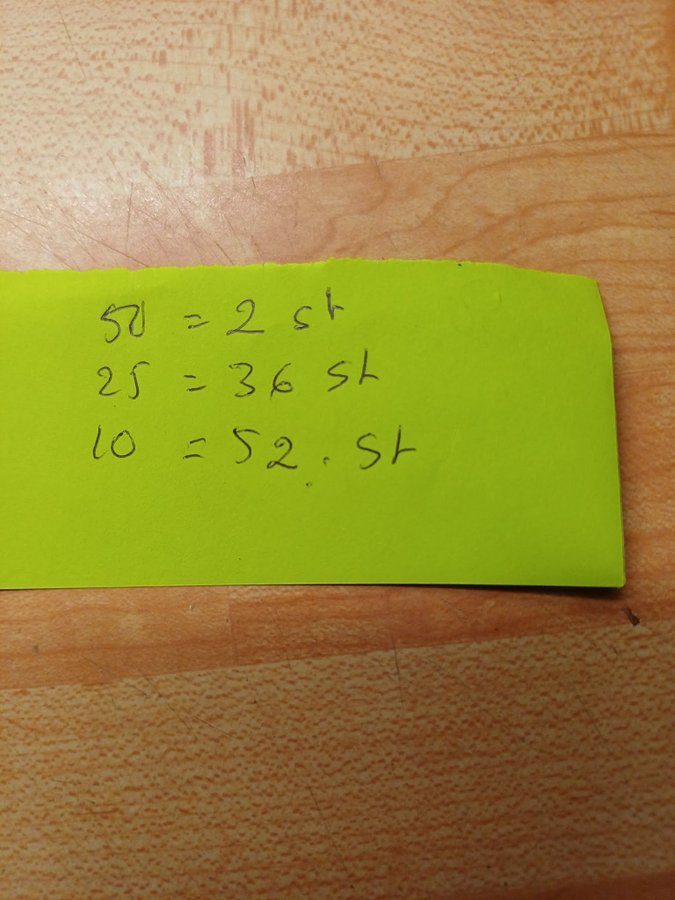 50 = 2 st
25 = 36 st
10 = 52. st